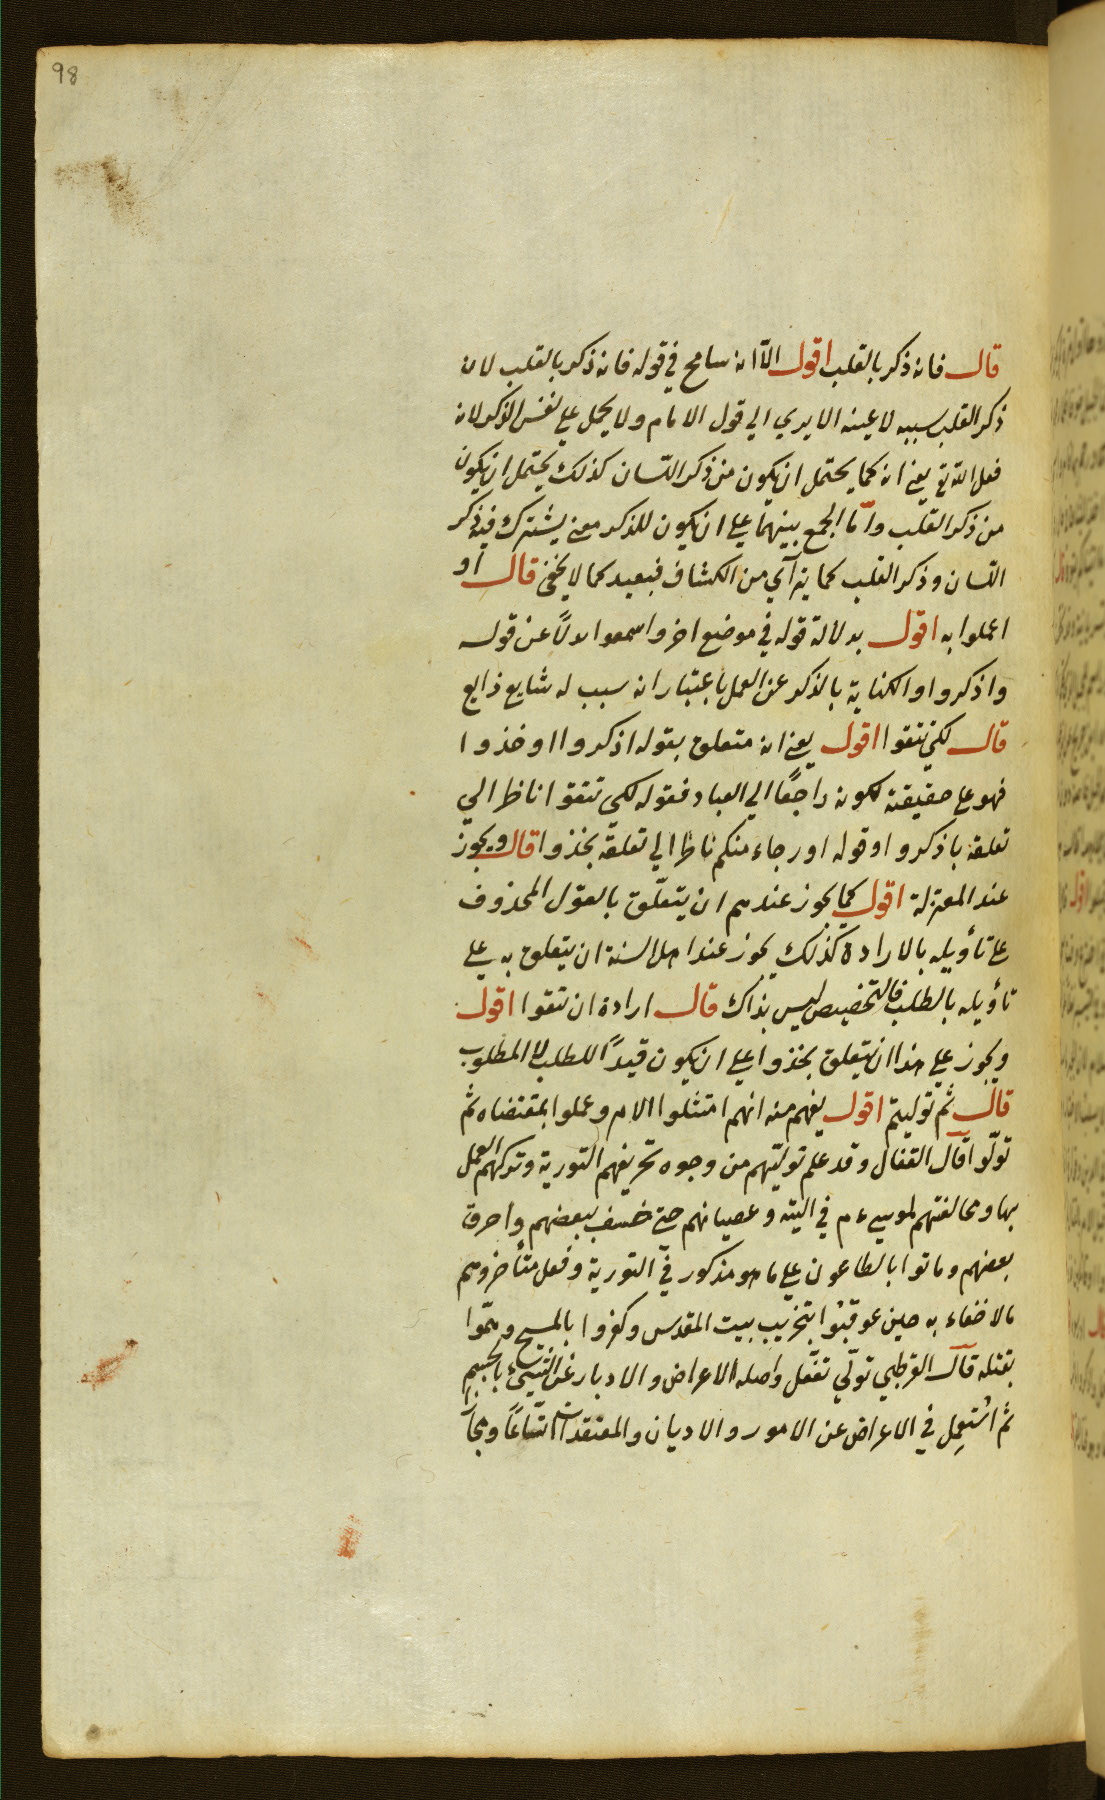 98
قال فانه ذكر بالقلب اقول الا انه سامح في قوله فانه ذكر بالقلب لان
ذكر القلب سببه لا عينه الا يري الي قول الامام ولا يحمل علي نفس الذكر لانه
فعل الله تع يعني انه كما يحتمل ان يكون من ذكر اللسان كذلك يحتمل ان يكون
من ذكر القلب وامّا الجمع بينهما علي ان يكون للذكر معني يشترك فيه ذكر
اللسان وذكر القلب كما من الكشاف فبعيد كما لا يخفي قال او
اعملوا به اقول بدلالة قوله في موضع اخر واسمعوا بدلاً عن قوله
واذكروا والكناية بالذكر عن العمل باعتبار انه سبب له شايع ذايع
قال لكي تتقوا اقول يعني انه متعلق بقوله اذكروا او خذوا
فهو علي حقيقته لكونه راجعًا الي العباد فقوله لكي تتقوا ناظر الي
تعلقه باذكروا وقوله او رجاء منكم ناظر الي تعلقه بخذوا قال ويجوز
عند المعتزلة اقول كما يجوز عندهم ان يتعلّق بالقول المحذوف
علي تأويله بالارادة كذلك يجوز عند اهل السنة ان يتعلق به علي
تأويله بالطلب فالتخصيص ليس بذاك قال ارادة ان تتقوا اقول
ويجوز علي هذا ان يتعلق بخذوا علي ان يكون قيدًا للطلب لا المطلوب
قال ثم توليتم اقول يفهم منه انهم امتثلوا الامر وعملوا بمقتضاه ثم
تولّوا قال القفال وقد علم توليّهم من وجوه تحريفهم التورية وتركهم العمل
بها ومخالفتهم لموسي ءم في التيه وعصيانهم حتي خسف ببعضهم واحرق
بعضهم وماتوا بالطاعون علي ما هو مذكور في التورية وفعل متأخروهم
مالا خفاء به حين عوقبُوا بتخريب بيت المقدس وكفروا بالمسيح وهمّوا
بقتله قال القرطبي تولّي تفعّل واصله الاعراض والادبار عن الشيء بالجسم
ثم استُعمِل في الاعراض عن الامور والاديان والمعتقدات اتّساعًا ومجاز